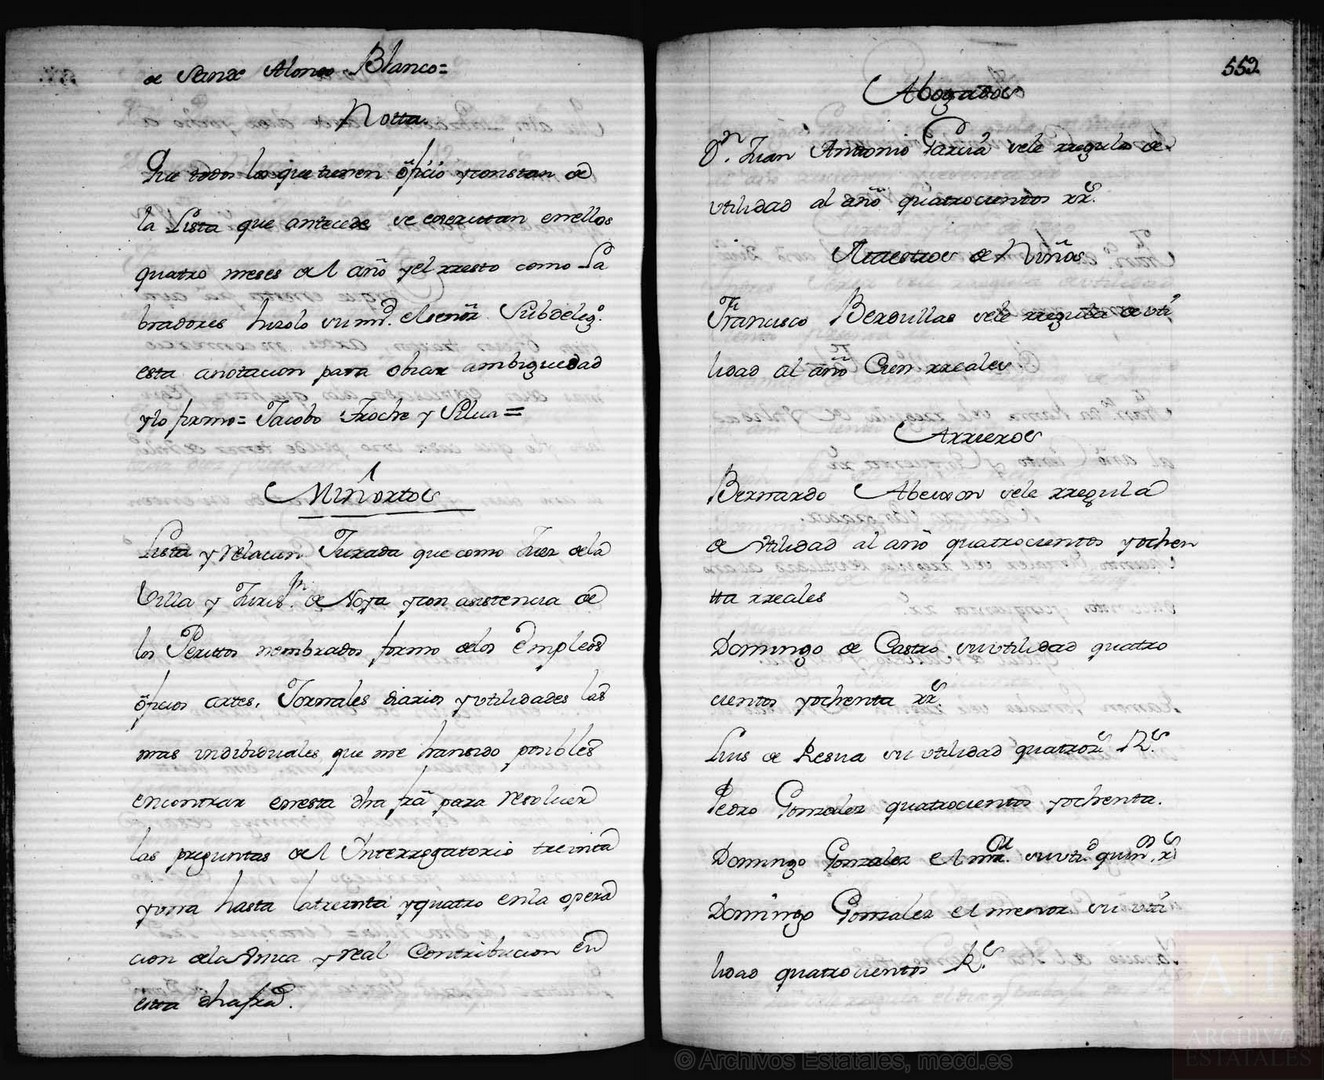 de Stande Alonso Blanco=
Notta.
Que todos los que tienen ofiçio y constan de
la Lista que antecede se exercitan en ellos
quatro meses del año y el rresto como La
bradores hizolo su md. el señor Subdelego.
esta anotacion para obiar ambiguedad
y lo firmo= Jacobo Froche y Silua=
Miñortos
Lista y Relacion Jurada que como Juez de la
Villa y Jurisn. de Noya y con asistencia de
los Peritos nombrados formo de los Empleos
ofiçios artes, Jornales diarios y utilidades las
mas indibiduales que me han sido posibles
encontrar en esta dha fra para resoluer
las preguntas del Interrogatorio treinta
y una hasta la treinta y quatro en la opera
cion de la Unica y real Contribucion en
esta dha frad.
552.
Abogados
Dn. Juan Antonio Garcia se le rregula de
utilidad al año quatrocientos rrs.
Maestros de Niños
Francisco Bergullas se le rregula de uti
lidad al año Cien rreales.
Arrieros
Bernardo Abeixon se le rregula
de utilidad al año quatrocientos y ochen
tta rreales
Domingo de Castro su utilidad quatro
cientos y ochenta rrs.
Luis de Resua su utilidad quatrozs. Rs.
Pedro Gonzalez quatrocientos y ochenta.
Domingo Gonzalez el mr. su utid. quinos. rs
Domingo Gonzalez el menor su uti
lidad quatrocientos Rs.
© Archivos Estatales, mecd.es
ARCHIVOS
ESTATALES